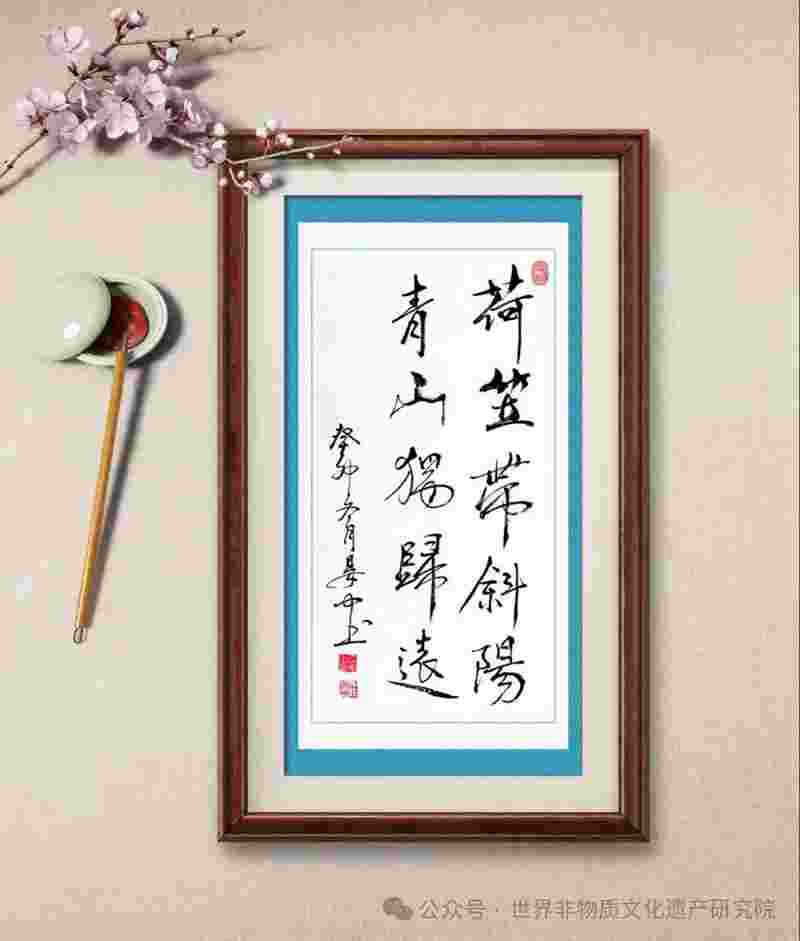 荷笠帶斜陽
青山獨歸遠
癸卯
月
书
公众号 · 世界非物质文化遗产研究院